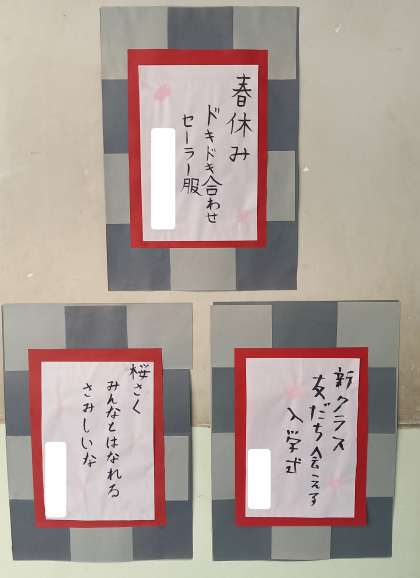 春休み
ドキドキ合わせ
セーラー服
桜さく
みんなとはなれる
さみしいな
新クラス
友だち会える
入学式